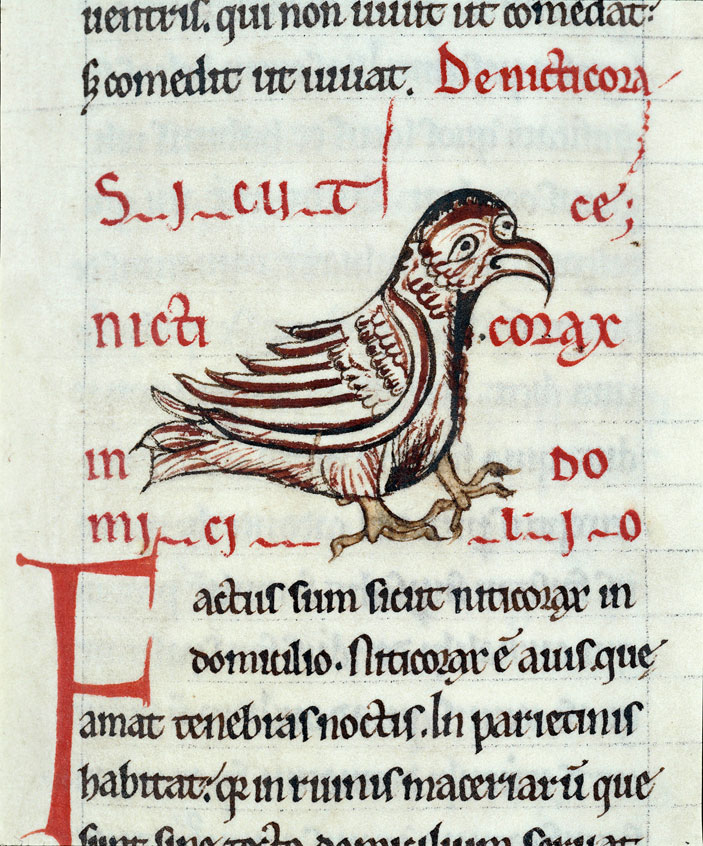 uentris. qui non uiuit ut comedat:
s; comedit ut uiuat. De nicticora
S_i_cu_t ce;
nicti corax
in do
mi_ci__ _li_i_o
Factus sum sicut niticorax in
domicilio. Niticorax ē auis que
amat tenebras noctis. In parietinis
habitat: qꝛ in ruinis maceriarū que
sunt sine tecto domicilium seruat